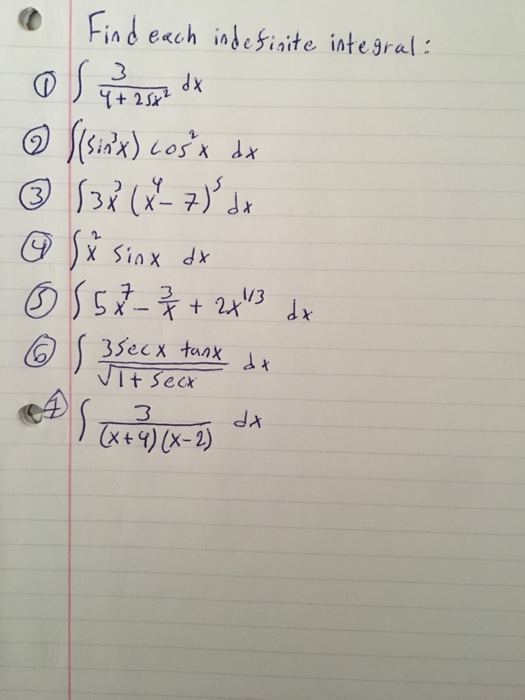 Find each indefinite integral:
① ∫ 3/(4+25x²) dx
② ∫(sin³x) cos²x dx
③ ∫3x³(x⁴-7)⁵ dx
④ ∫x² sinx dx
⑤ ∫5x⁷ - 3/x + 2x^1/3 dx
⑥ ∫ 3secx tanx/√(1+secx) dx
⑦ ∫ 3/((x+4)(x-2)) dx